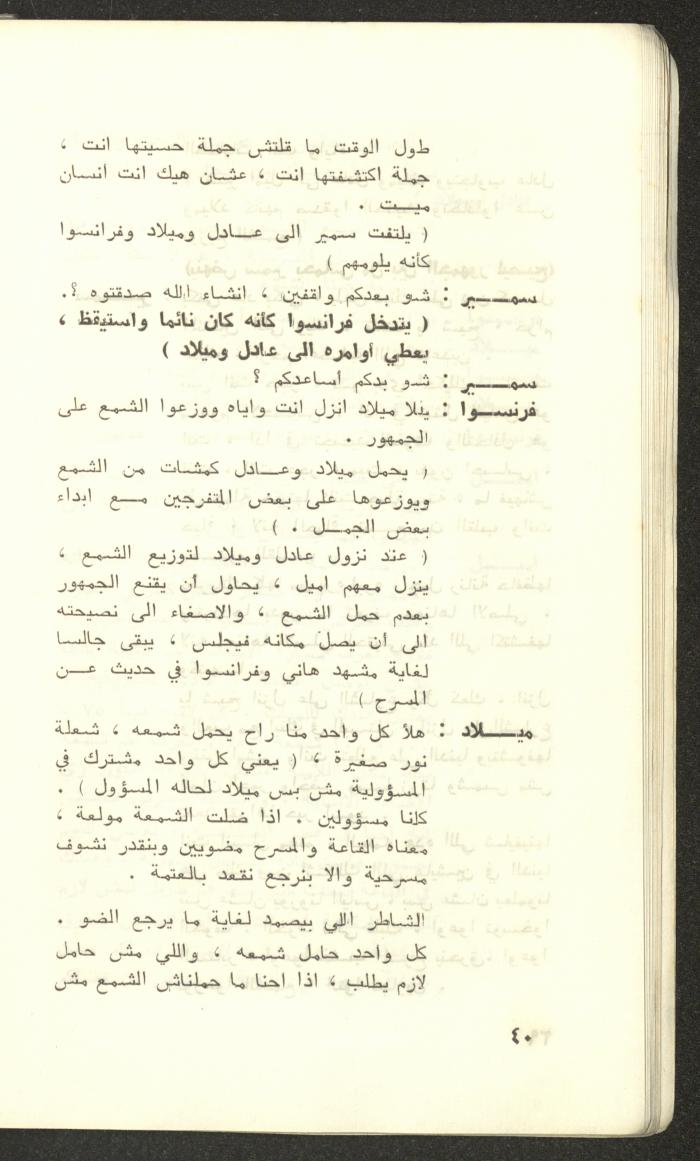 طول الوقت ما قلتش جملة حسيتها انت ،
جملة اكتشفتها انت ، عشان هيك انت أنسان
ميـت .
( يلتفت سمير الى عـادل وميلاد وفرانسوا
كأنه يلومهم )
سمـــير : شو بعدكم واقفين ، انشاء الله صدقتوه ؟.
( يتدخل فرانسوا كأنه كان نائما واستيقظ ،
يعطي أوامره الى عادل وميلاد )
سمـــير : شو بدكم أساعدكم ؟
فرنسـوا : يللا ميلاد انزل انت واياه ووزعوا الشمع على
الجمهور .
( يحمل ميلاد وعـادل كمشات من الشمع
ويوزعوها على بعض المتفرجين مـع ابداء
بعض الجمـل . )
( عند نزول عادل وميلاد لتوزيع الشمع ،
ينزل معهم اميل ، يحاول أن يقنع الجمهور
بعدم حمل الشمع ، والاصغاء الى نصيحته
الى أن يصل مكانه فيجلس ، يبقى جالسا
لغاية مشهد هاني وفرانسوا في حديث عـن
المسرح )
ميــلاد : هلأ كل واحد منا راح يحمل شمعه ، شعلة
نور صغيرة ، ( يعني كل واحد مشترك في
المسؤولية مش بس ميلاد لحاله المسؤول ) .
كلنا مسؤولين . اذا ضلت الشمعة مولعة ،
معناه القاعة والمسرح مضويين وبنقدر نشوف
مسرحية والا بنرجع نقعد بالعتمة .
الشاطر اللي بيصمد لغاية ما يرجع الضو .
كل واحد حامل شمعه ، واللي مش حامل
لازم يطلب ، اذا احنا ما حملناش الشمع مش
٤٠